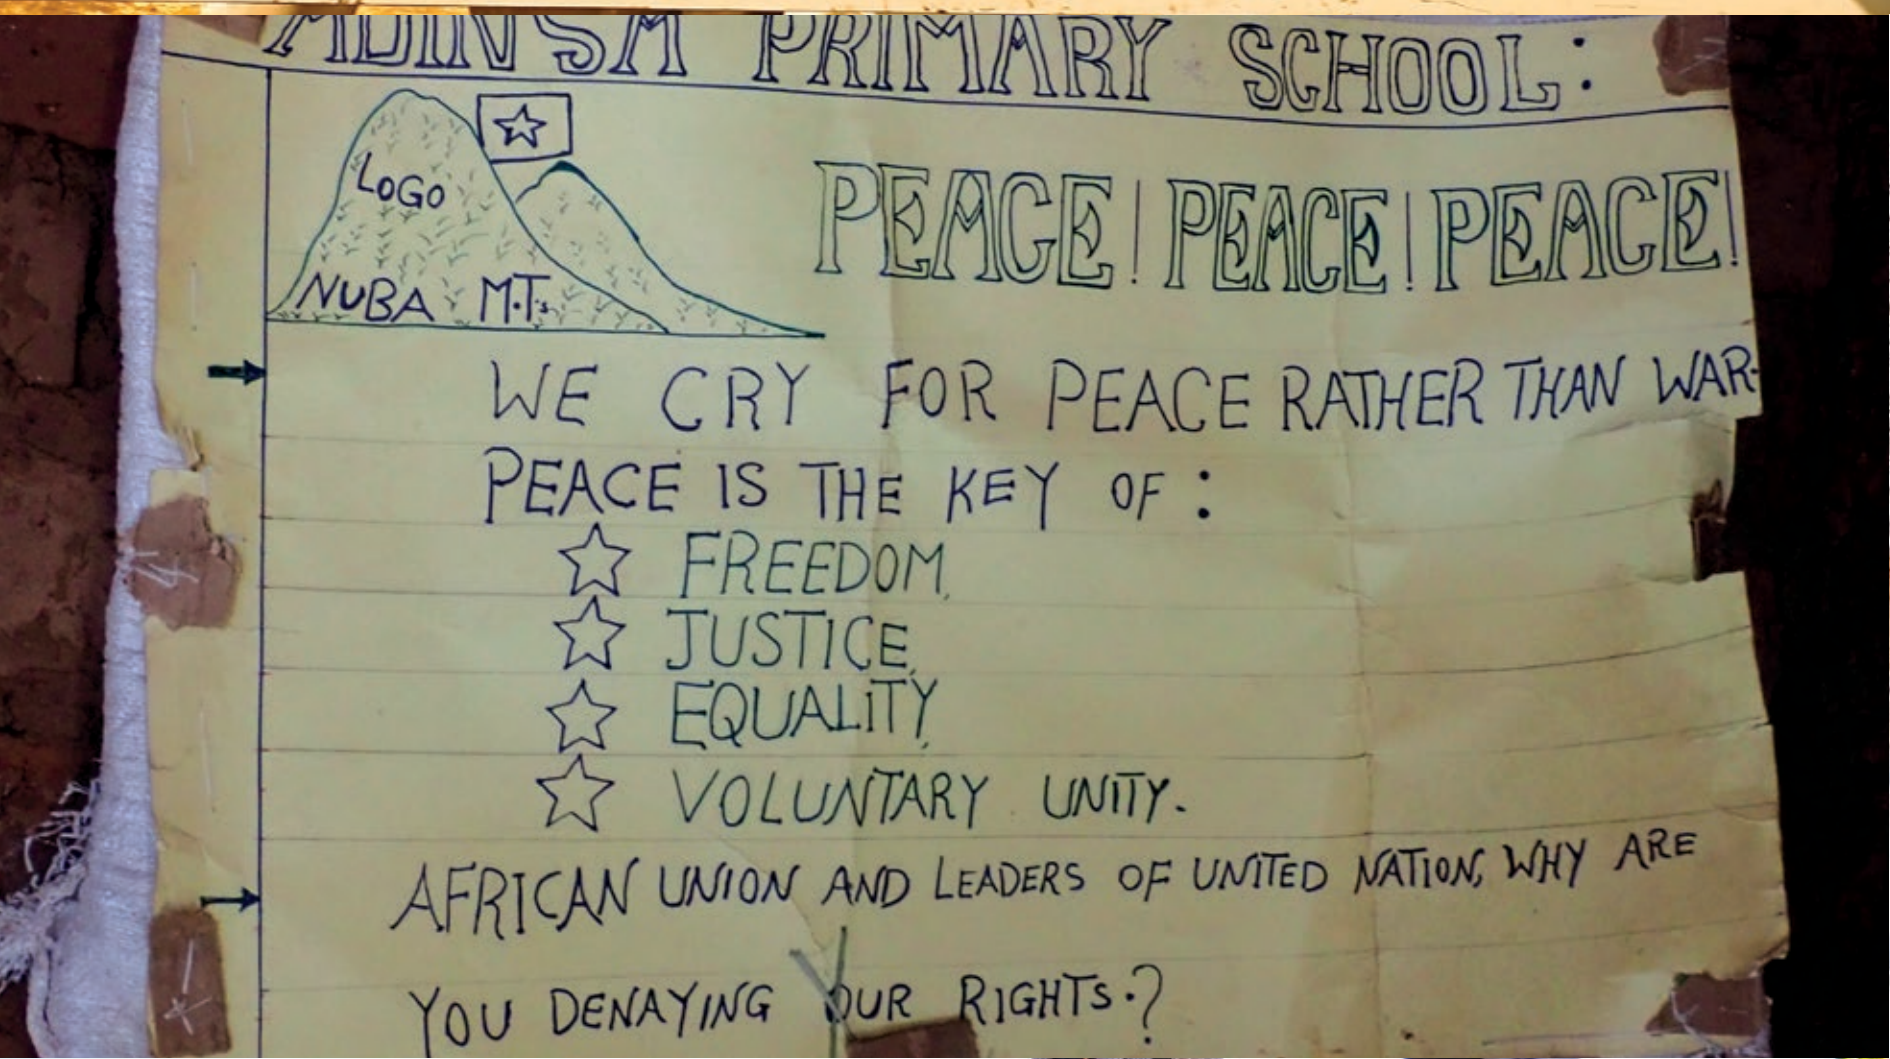 ADINSA PRIMARY SCHOOL:
LOGO
NUBA M.Ts
PEACE! PEACE! PEACE!
WE CRY FOR PEACE RATHER THAN WAR-
PEACE IS THE KEY OF :
FREEDOM,
JUSTICE,
EQUALITY,
VOLUNTARY UNITY.
AFRICAN UNION AND LEADERS OF UNITED NATION, WHY ARE
YOU DENAYING OUR RIGHTS.?